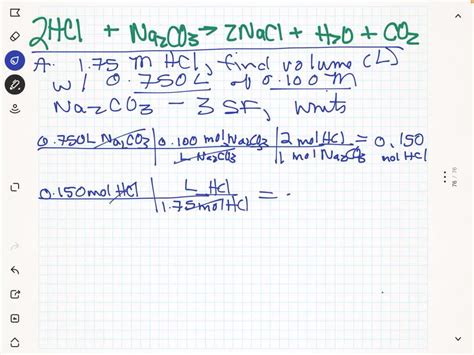 2HCl + Na2CO3 → 2NaCl + H2O + CO2
A. 1.75 M HCl, find volume (L)
w/ 0.750L of 0.100 M
Na2CO3 - 3 SF, units
0.750L Na2CO3 | 0.100 mol Na2CO3 | 2 mol HCl = 0.150
L Na2CO3 | 1 mol Na2CO3 mol HCl
0.150 mol HCl | L HCl =
1.75 mol HCl